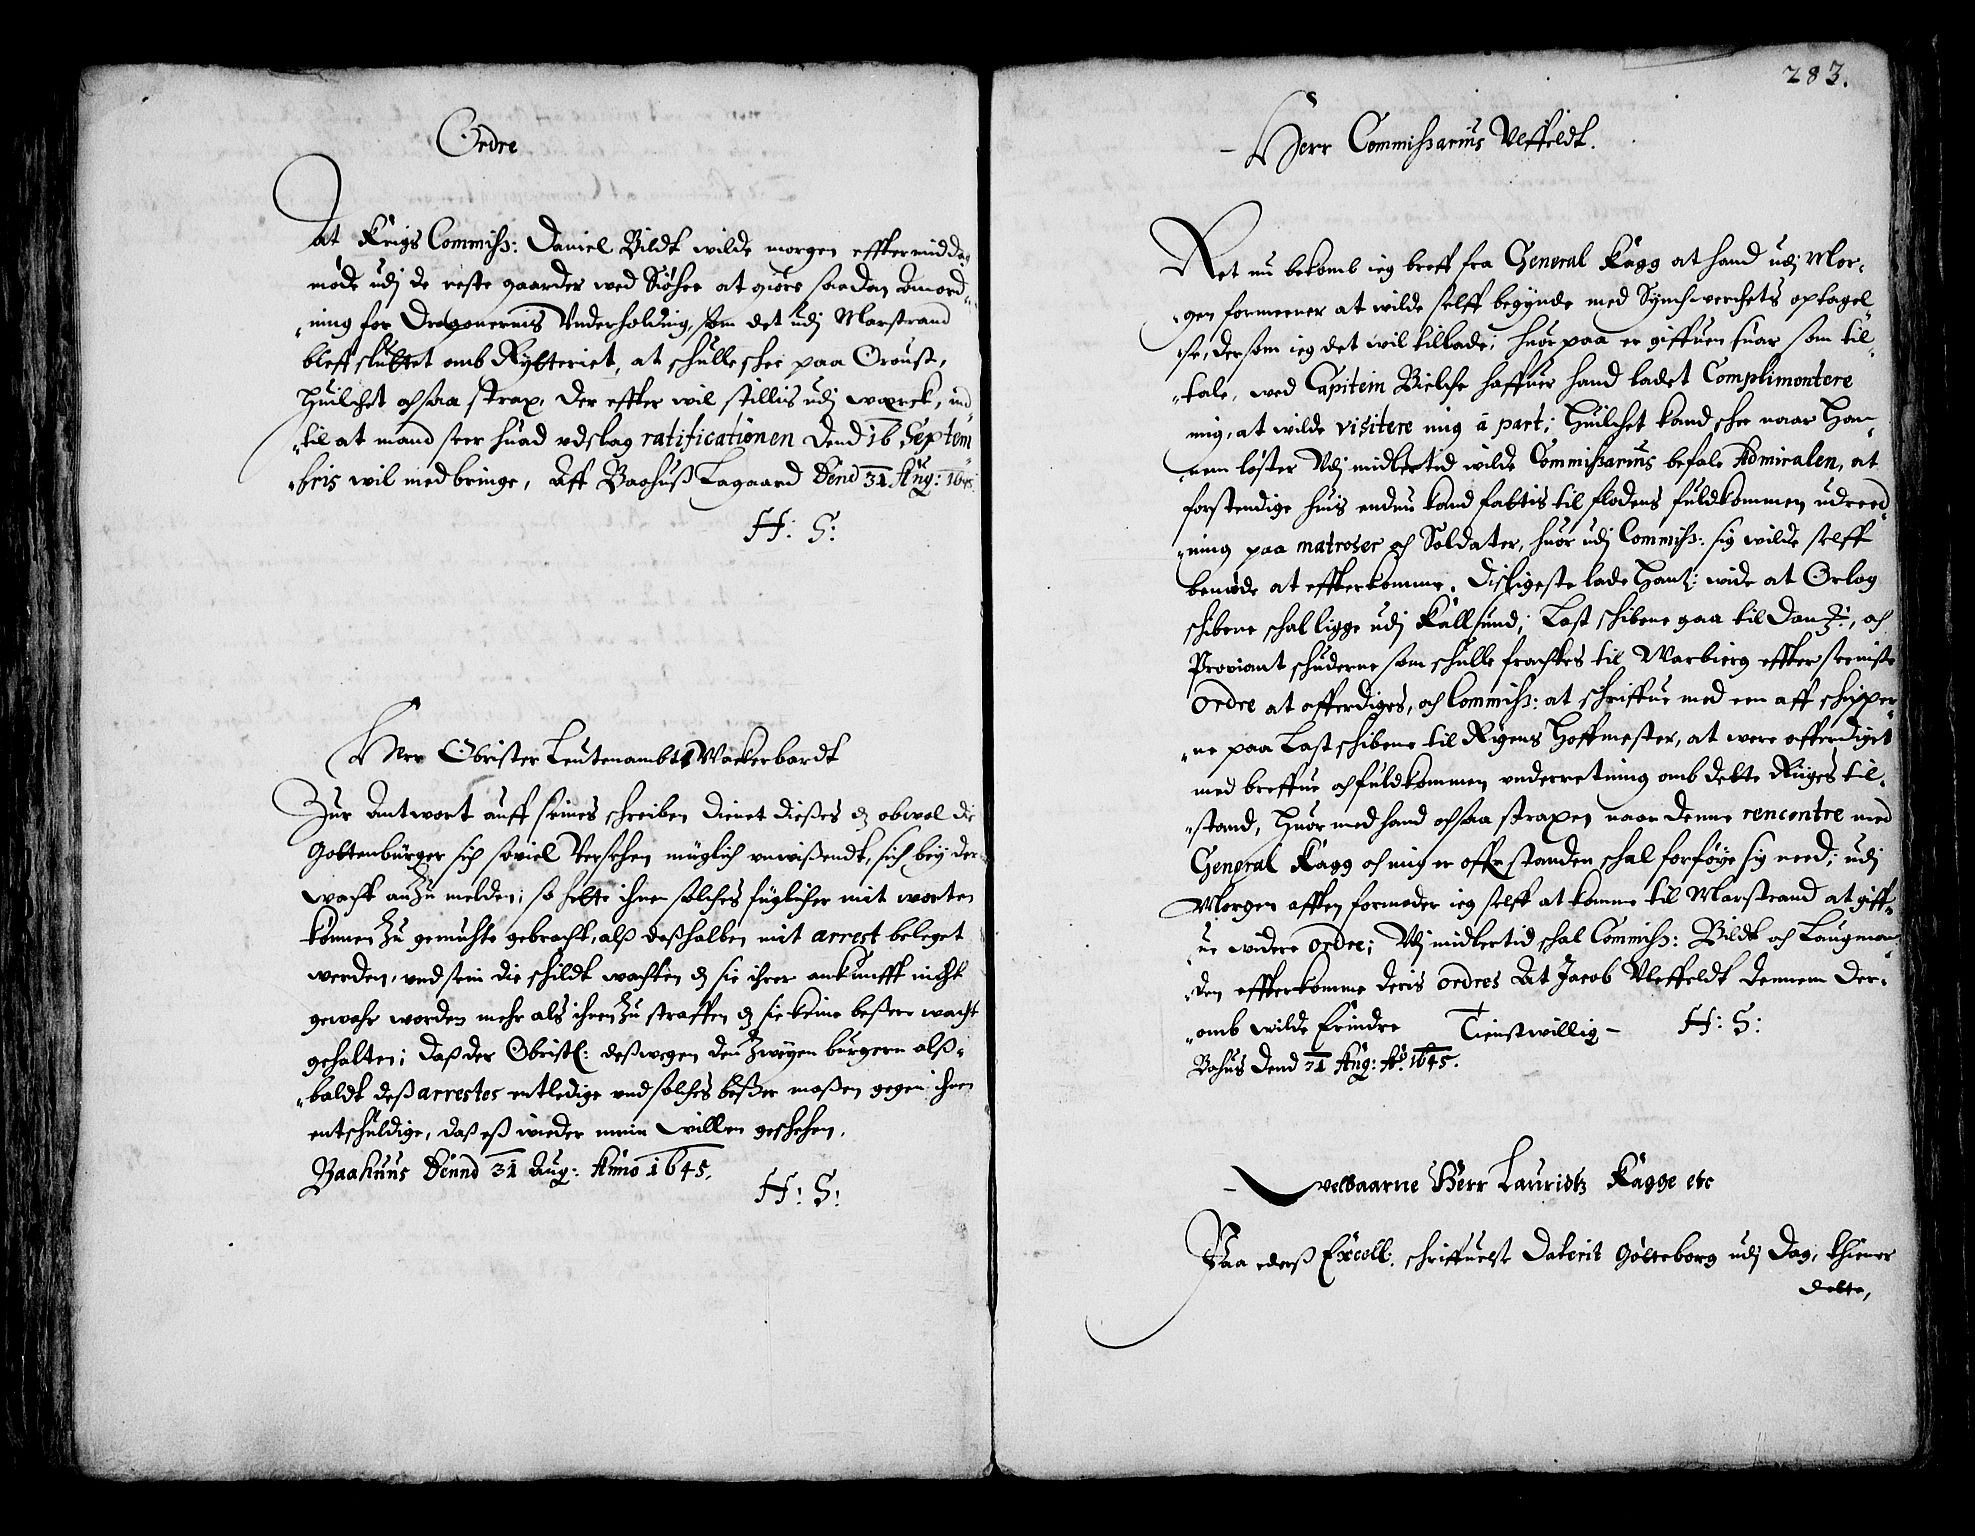 Ordre
At Krigs Commiss: Daniel Bildt wilde morgen effttermiddag
møde udj de reste gaarder wed Siøsee at giøre saadan anord-
ning for Dragonernis Underholding, som det udj Marstrand
bleff sluttet omb Rytteriet, at schulle schee paa Oroust,
Huilchet ochsaa strax, der effter wil stillis udj werck, ind
til at mand seer huad udslag ratificationen Dend 16 Septem
bris wil medbringe, Aff Baahuss Lagaard Dend 31 Aug: 1645.
H: S:
Herr Obrister Leutenambt Wackerbardt
Zur Antwort auff seines schreiben dienet dieses dz obwol die
Gottenbürger sich soviel versehen müglich unwissendt, sich bey der
wacht anzu melden; so hette ihnen solches füglicher mit worten
können zu gemuhte gebracht, alss desshalben mit arrest beleget
werden, und sein die schildt wachten dz sie ihrer ankunfft nicht
gewahr worden mehr als ihnen zu straffen dz sie keine bessere wacht
gehalten; dass der Obristl: desswegen den zweyen bürgern alss-
baldt dess arrestes entledige und solches besser massen gegen ihnen
entschuldige, dass ess wieder mein willen geschehen.
Baahuus Dennd 31 Aug: Anno 1645.
H: S:
283.
Herr Commissarius Ulffeldt.
Ret nu bekomb ieg breff fra General Kagg at hand udj Mor-
gen formeener at wilde selff begynde med Synchwerchets optagel
se, dersom ieg det wil tillade; huorpaa er giffuen suar som til-
tale, wed Capitein Bielche haffuer hand ladet Complimentere
mig, at wilde visitere mig à part; Huilchet kand schee naar Han-
nem løster Udj midlertid wilde Commissarius befale Admiralen, at
forstendige huis endnu kand fattis til flodens fuldkommen udreed-
ning paa matroser och Soldater, huor udj Commiss: sig wilde selff
bemøde at effterkomme. Disligeste lade Hantz: wide at Orlog
schibene schal ligge udj Kallsund; Last schibene gaa til Dantz:, och
Proviant schuderne som schulle frachtes til Warbierg effter seeniste
Ordre at afferdiges, och Commiss: at schriffue med een aff schipper-
ne paa Last schibene til Rigens Hoffmester, at were afferdiget
med breffue och fuldkommen underretning omb dette Riiges til-
stand, Huor med hand ochsaa straxen naar denne rencontre med
General Kagg och mig er offr standen schal forføye sig need; udj
Morgen afften formoder ieg selff at komme til Marstrand at giff-
ue widere ordre; Udj midlertid schal Commiss: Bildt och Laugman-
den effterkomme deris ordres At Jacob Uleffeldt dennem der-
omb wilde Erindre Tienstwillig – H: S:
Bahus Dend 31 Aug: Ao. 1645.
Welbaarne Herr Lauridtz Kagge etc
Paa ederss Excell: schriffuelse Daterit Götteborg udj Dag, thiener
dette,